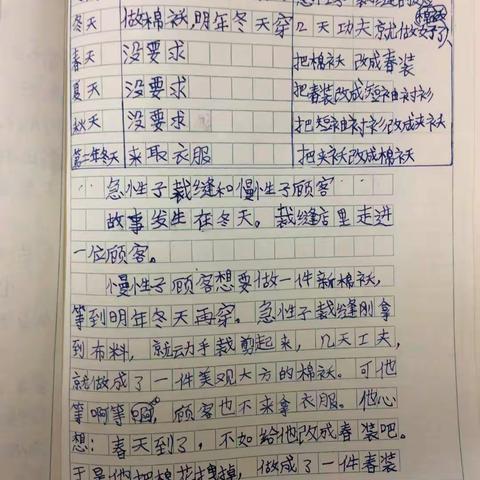 冬天 做棉袄,明年冬天穿 几天功夫就做好了
春天 没要求 把棉袄改成春装
夏天 没要求 把春装改成短袖衬衫
秋天 没要求 把短袖衬衫改成夹袄
第二年冬天 来取衣服 把夹袄改成棉袄
急性子裁缝和慢性子顾客
故事发生在冬天。裁缝店里走进
一位顾客。
慢性子顾客想要做一件新棉袄,
等到明年冬天再穿。急性子裁缝刚拿
到布料,就动手裁剪起来,几天工夫,
就做成了一件美观大方的棉袄。可他
等啊等啊,顾客也不来拿衣服。他心
想:春天到了,不如给他改成春装吧。
于是他把棉花拽掉,做成了一件春装